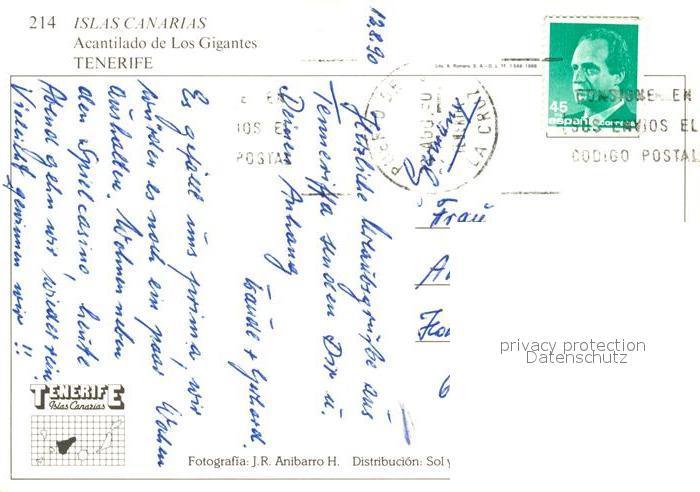 214 ISLAS CANARIAS
Acantilado de Los Gigantes
TENERIFE
12.8.90
Lito. A. Romero, S. A.
45
españa
correos
PUERTO DE
LA CRUZ
AGO 90
CONSIGNE EN
SUS ENVIOS EL
CODIGO POSTAL
E EN
IOS EL
POSTAL
Germany
Frau
Herzliche Urlaubsgrüße aus
Tenneriffa senden Dir u.
Deinem Anhang
Traudl + Gerhard.
Es gefällt uns prima, wir
würden es noch ein paar Wochen
aushalten. Wohnen neben
den Spielcasino, heute
Abend gehn wir wieder rein,
Vielleicht gewinnen wir !!
privacy protection
Datenschutz
TENERIFE
Islas Canarias
Fotografía: J.R. Anibarro H. Distribución: Sol y